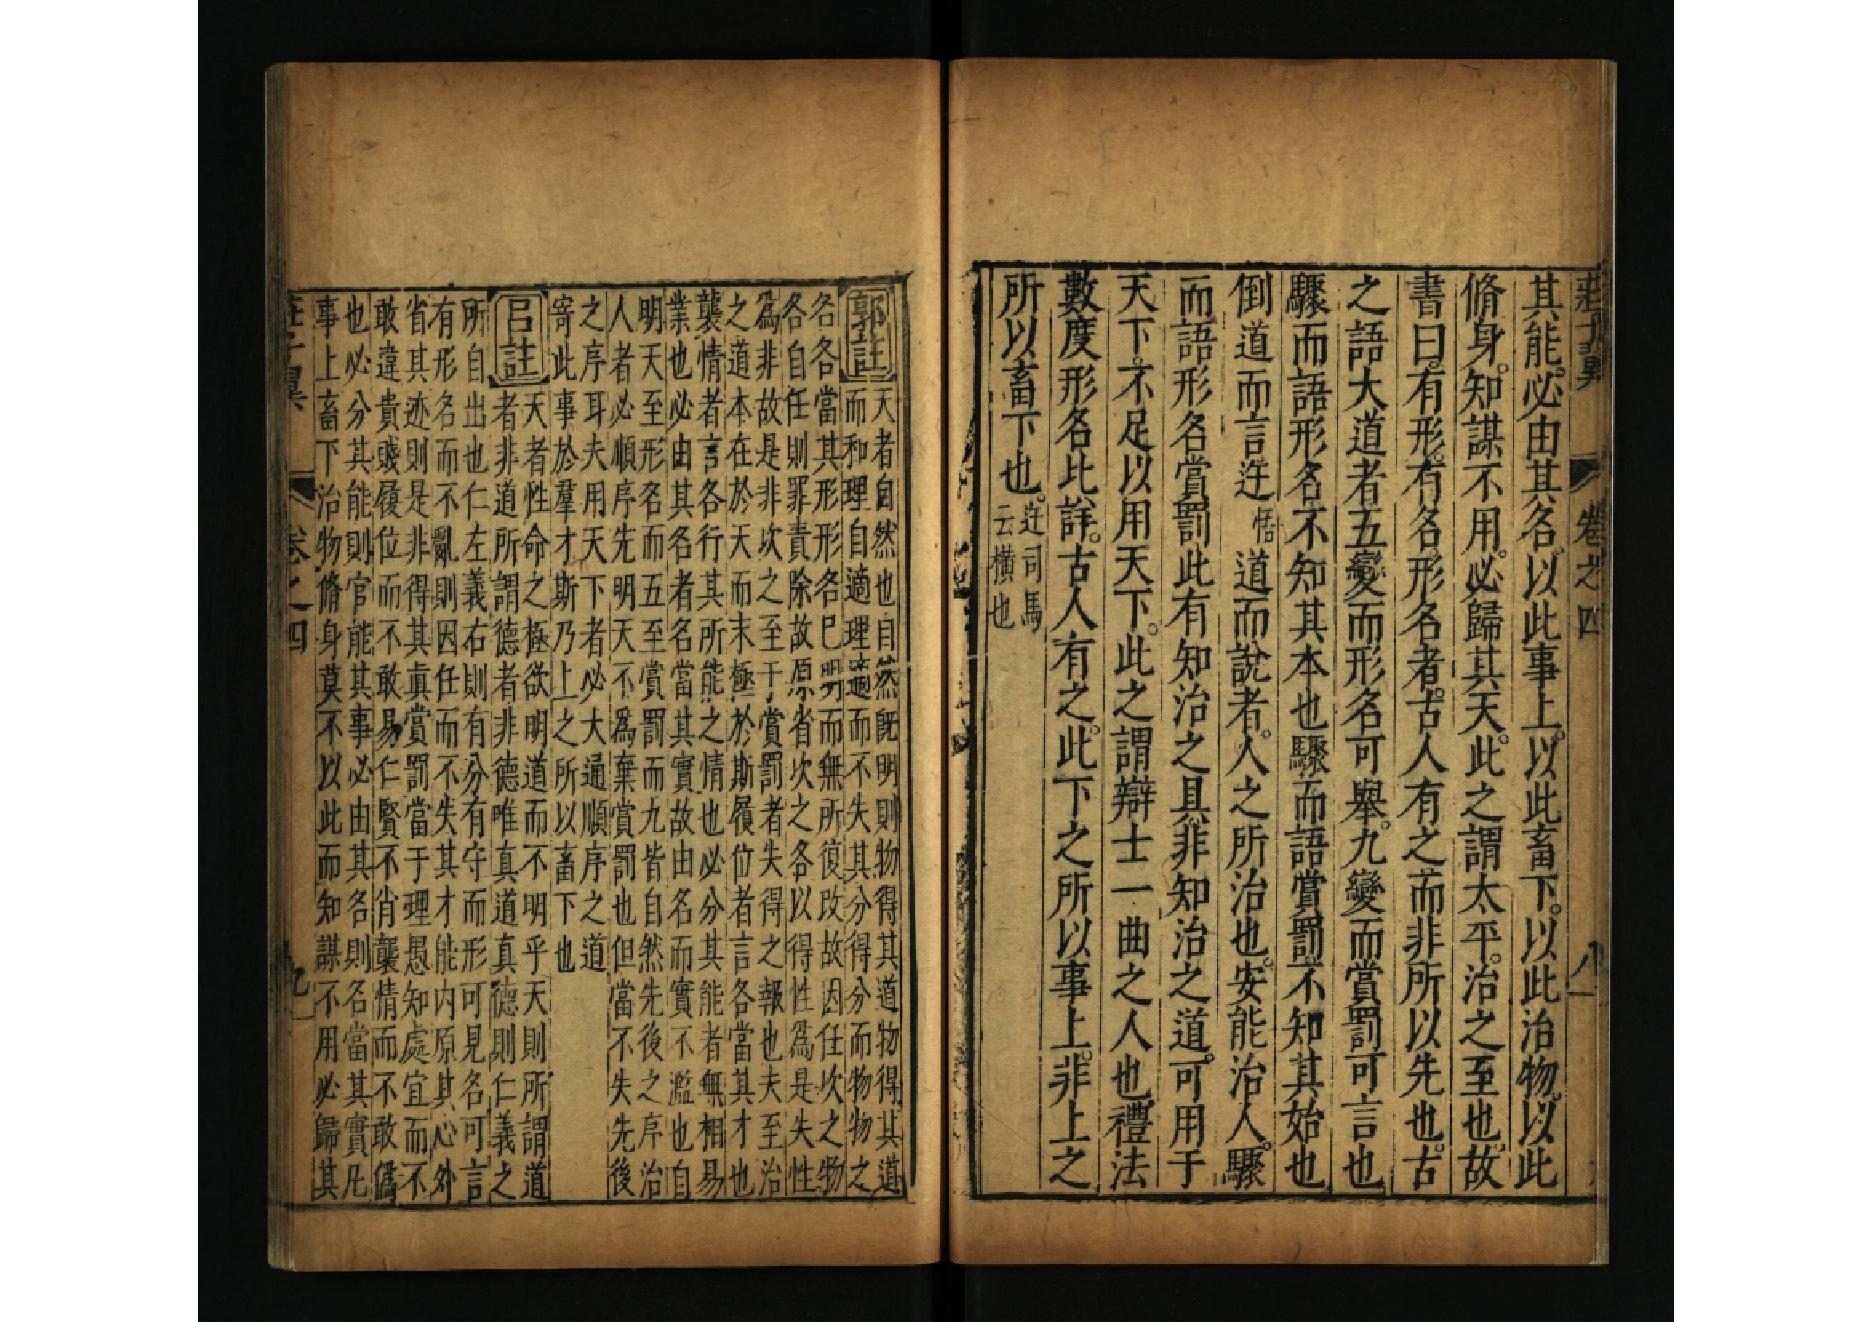 莊子翼 卷之四 八
其能必由其名。以此事上。以此畜下。以此治物。以此
脩身。知謀不用。必歸其天。此之謂太平。治之至也。故
書曰。有形。有名。形名者。古人有之。而非所以先也。古
之語大道者五變而形名可舉。九變而賞罰可言也
驟而語形名不知其本也驟而語賞罰不知其始也
倒道而言迕悟道而說者。人之所治也。安能治人。驟
而語形名賞罰此有知治之具非知治之道。可用于
天下。不足以用天下。此之謂辯士一曲之人也禮法
數度形名比詳。古人有之。此下之所以事上。非上之
所以畜下也。迕司馬
云橫也
郭註 天者自然也自然既明則物得其道物得其道
而和理自適理適而不失其分得分而物物之
各各當其形形各已明而無所復改故因任次之物
各自任則罪責除故原省次之各以得性為是失性
為非故是非次之至于賞罰者失得之報也夫至治
之道本在於天而末極於斯履位者言各當其才也
襲情者言各行其所能之情也必分其能者無相易
業也必由其名者名當其實故由名而實不濫也自
明天至形名而五至賞罰而九皆自然先後之序治
人者必順序先明天不為棄賞罰也但當不失先後
之序耳夫用天下者必大通順序之道
寄此事於羣才斯乃上之所以畜下也
呂註 天者性命之極欲明道而不明乎天則所謂道
者非道所謂德者非德唯真道真德則仁義之
所自出也仁左義右則有分有守而形可見名可言
有形名而不亂則因任而不失其才能內原其心外
省其迹則是非得其真賞罰當于理愚知處宜而不
敢違貴賤履位而不敢易仁賢不肖襲情而不敢僞
也必分其能則官能其事必由其名則名當其實凡
事上畜下治物脩身莫不以此而知謀不用必歸其
莊子翼 卷之四 九